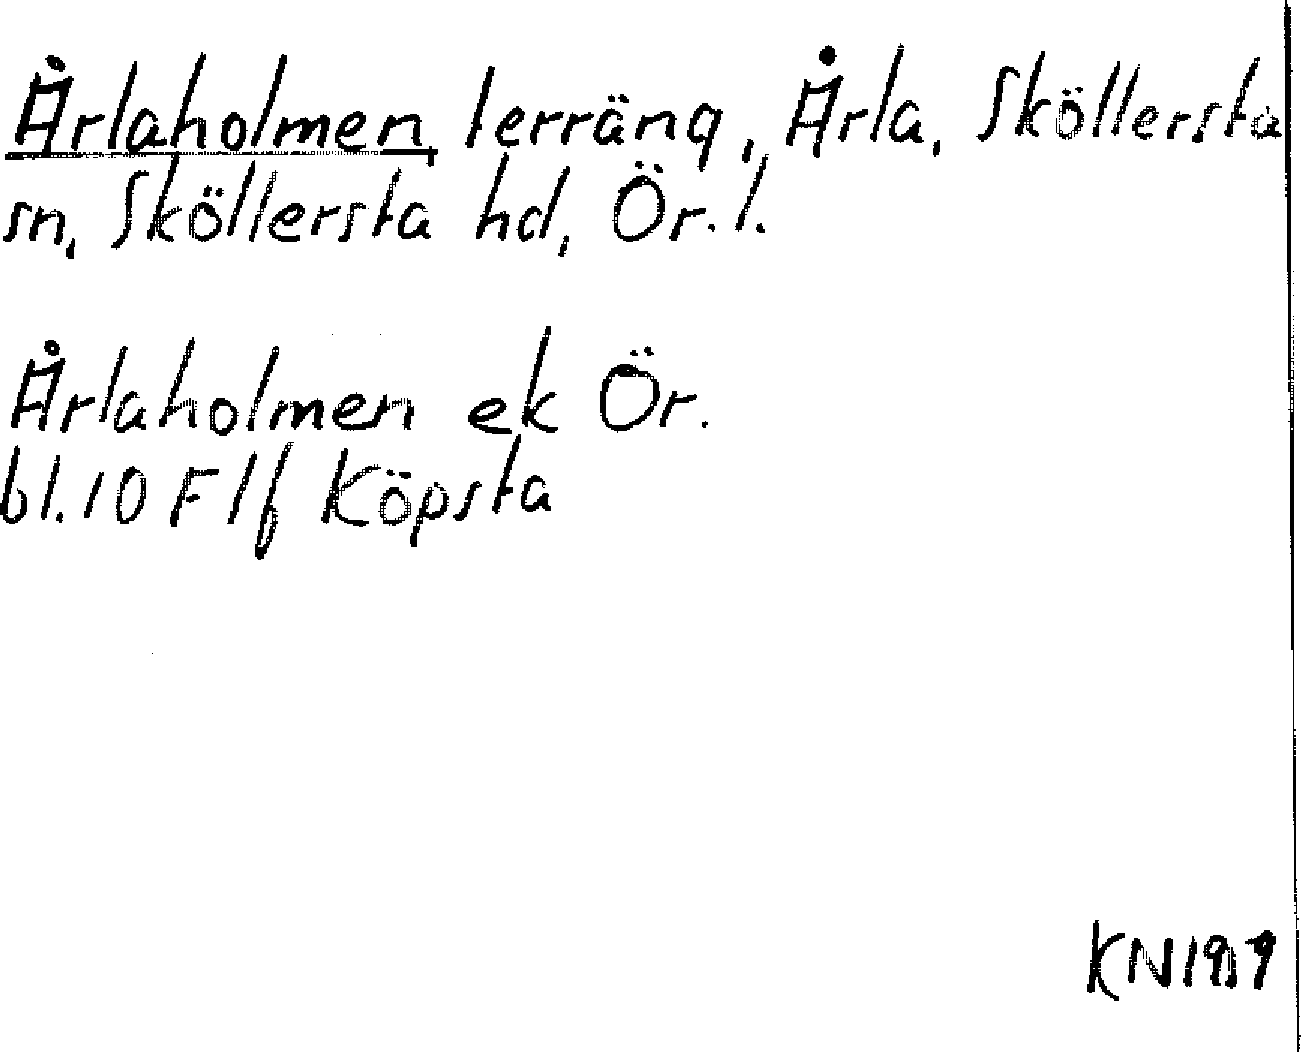 Årlaholmen, terräng, Årla, Sköllersta
sn, Sköllersta hd, Ör. l.
Årlaholmen ek Ör.
bl. 10 F 1f Köpsta